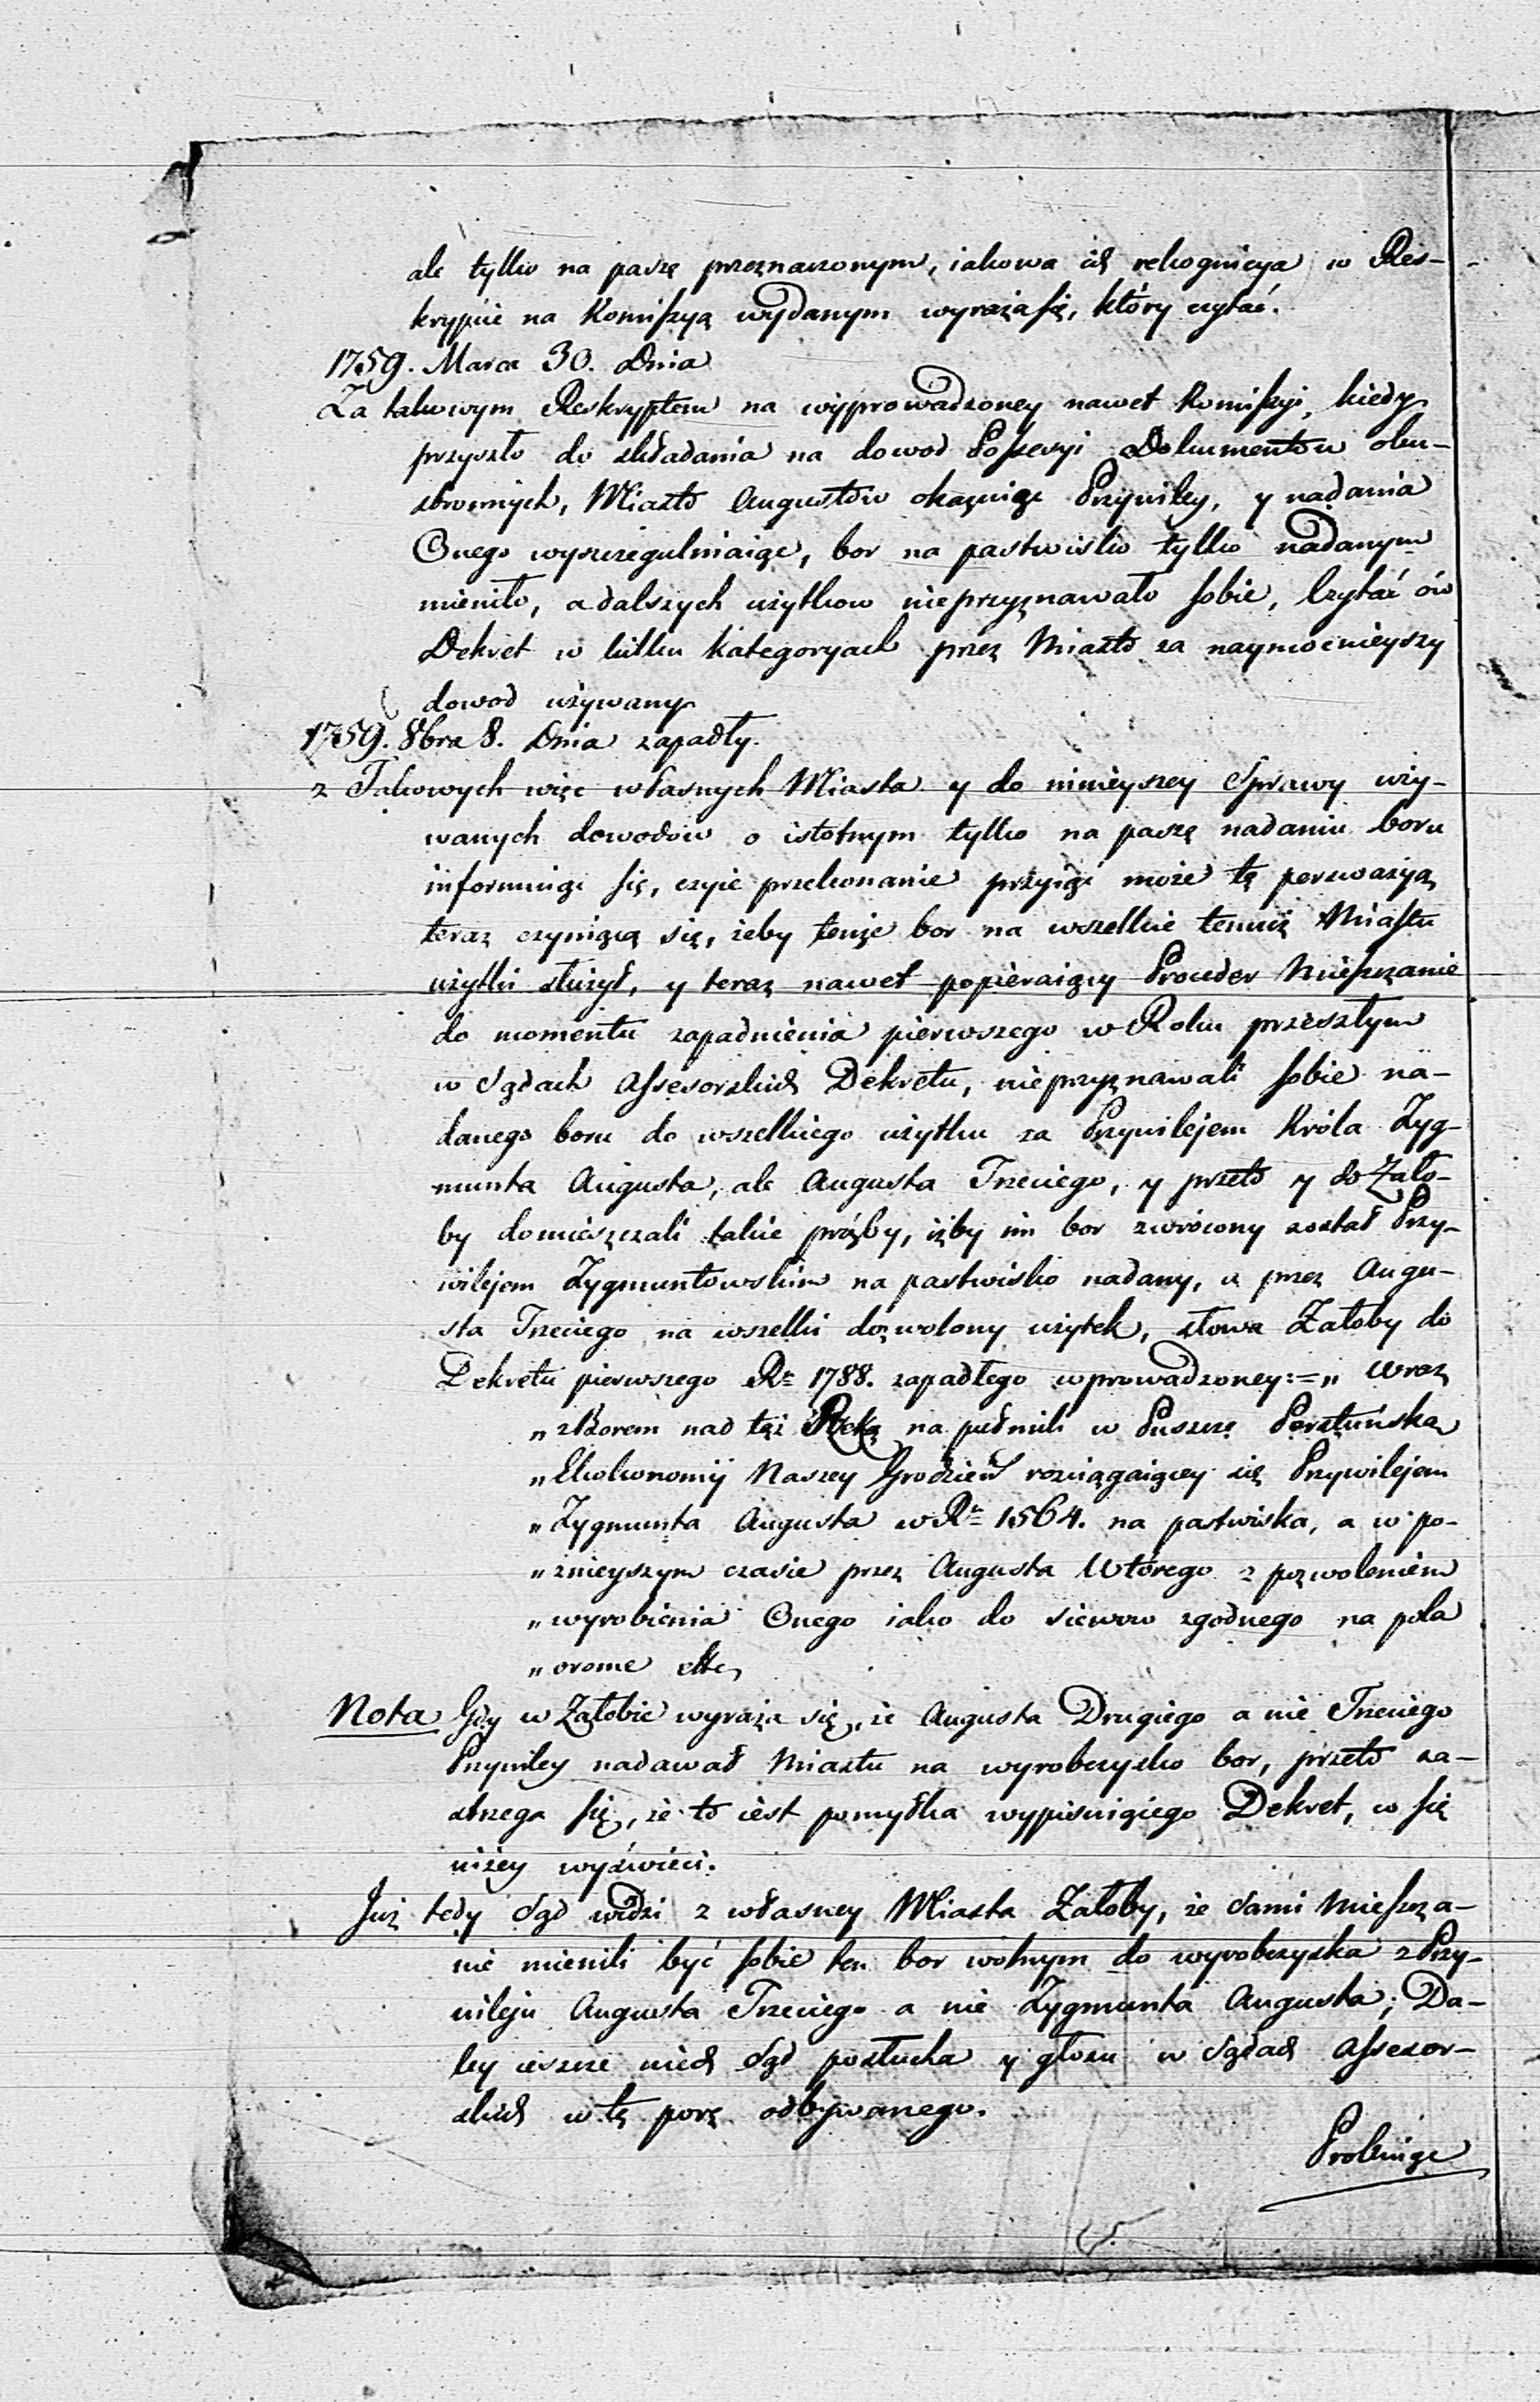 ale tylko na paszę przeznaczonym, iakowa ich rekognicya w Res-
krypcie na Komissyą wydanym wyraża się, który czytać.
1759. Marca 30. Dnia
Za takowym Reskryptem na wyprowadzoney nawet Komissyi, kiedy
przyszło do składania na dowod Possessyi Dokumentow obu-
stronnych, Miasto Augustow okazuiąc Przywiley, y nadania
Onego wyszczegulniaiąc, bor na pastwisko tylko nadanym
mieniło, a dalszych użytkow nieprzyznawało sobie, Czytać ów
Dekret w kilku kategoryach przez Miasto za naymocnieyszy
dowod używany
1759. 8bra 8. Dnia zapadły.
z Takowych więc własnych Miasta y do ninieyszey Sprawy uży-
wanych dowodow o istotnym tylko na paszę nadaniu boru
informuiąc się, czyie przekonanie przyiąć może tę perswazyą
teraz czyniącą się, żeby tenże bor na wszelkie temuż Miastu
użytki służył, y teraz nawet popieraiący Proceder Mieszczanie
do momentu zapadnienia pierwszego w Roku przeszłym
w Sądach Assesorskich Dekretu, nieprzyznawali sobie na-
danego boru do wszelkiego użytku za Przywilejem Króla Zyg-
munta Augusta, ale Augusta Trzeciego, y przeto y do Żało-
by domieszczali takie prózby, iżby im bor zwrócony został Przy-
wilejem Zygmuntowskim na pastwisko nadany, a przez Augu-
sta Trzeciego na wszelki dozwolony użytek, słowa Żałoby do
Dekretu pierwszego Rº 1788. zapadłego wprowadzoney:=„ Wraz
„zBorem nad tąż Rzeką na pułmili w Puszczę Perstuńską
„Ekokonomij Naszey Grodzień rozciągaiącey się Przywilejem
„Zygmunta Augusta w Rº 1564. na pastwiska, a w po-
„znieyszym czasie przez Augusta Wtórego z pozwoleniem
„wyrobienia Onego iako do siewow zgodnego na pola
„orome etc,
Nota Gdy w Żałobie wyraża się, że Augusta Drugiego a nie Trzeciego
Przywiley nadawał Miastu na wyrobczysko bor, przeto za-
strzega się, że to iest pomyłka wypisuiącego Dekret, co się
niżey wyświeci.
Już tedy Sąd widzi z własney Miasta Żałoby, że Sami Mieszcza-
nie mienili być sobie ten bor wolnym do wyrobczyska z Przy-
wileju Augusta Trzeciego a nie Zygmunta Augusta; Da-
ley ieszcze niech Sąd posłucha y głosu w Sądach Assesor-
skich w tę porę odbywanego.